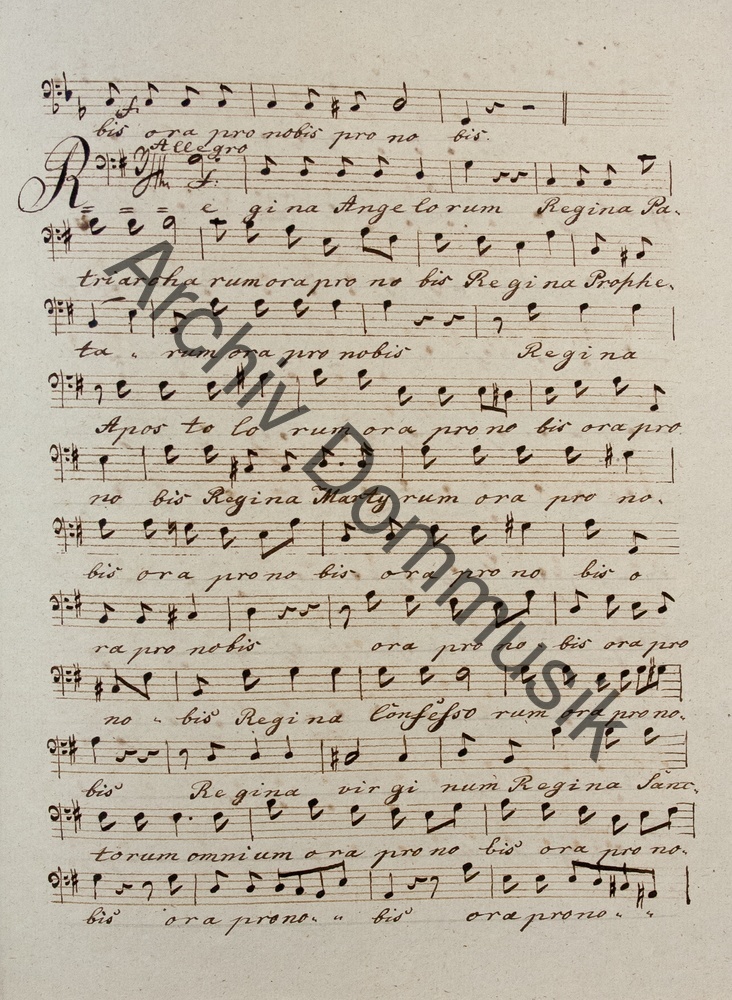 bis ora pro nobis pro no bis.
Allegro
R = = = e gina Ange lo rum Regina Pa-
triarcha rum ora pro no bis Re gi na Prophe-
ta " rum ora pro nobis Regina
Apos to lo rum ora pro no bis ora pro
no bis Regina Marty rum ora pro no-
bis ora pro no bis ora pro no bis o
ra pro nobis ora pro no - bis ora pro
no - " bis Regina Confesso rum ora pro no-
bis Regina vir gi num Regina Sanc-
torum omnium ora pro no bis ora pro no-
bis ora pro no- " bis ora pro no " "
Archiv Dommusik